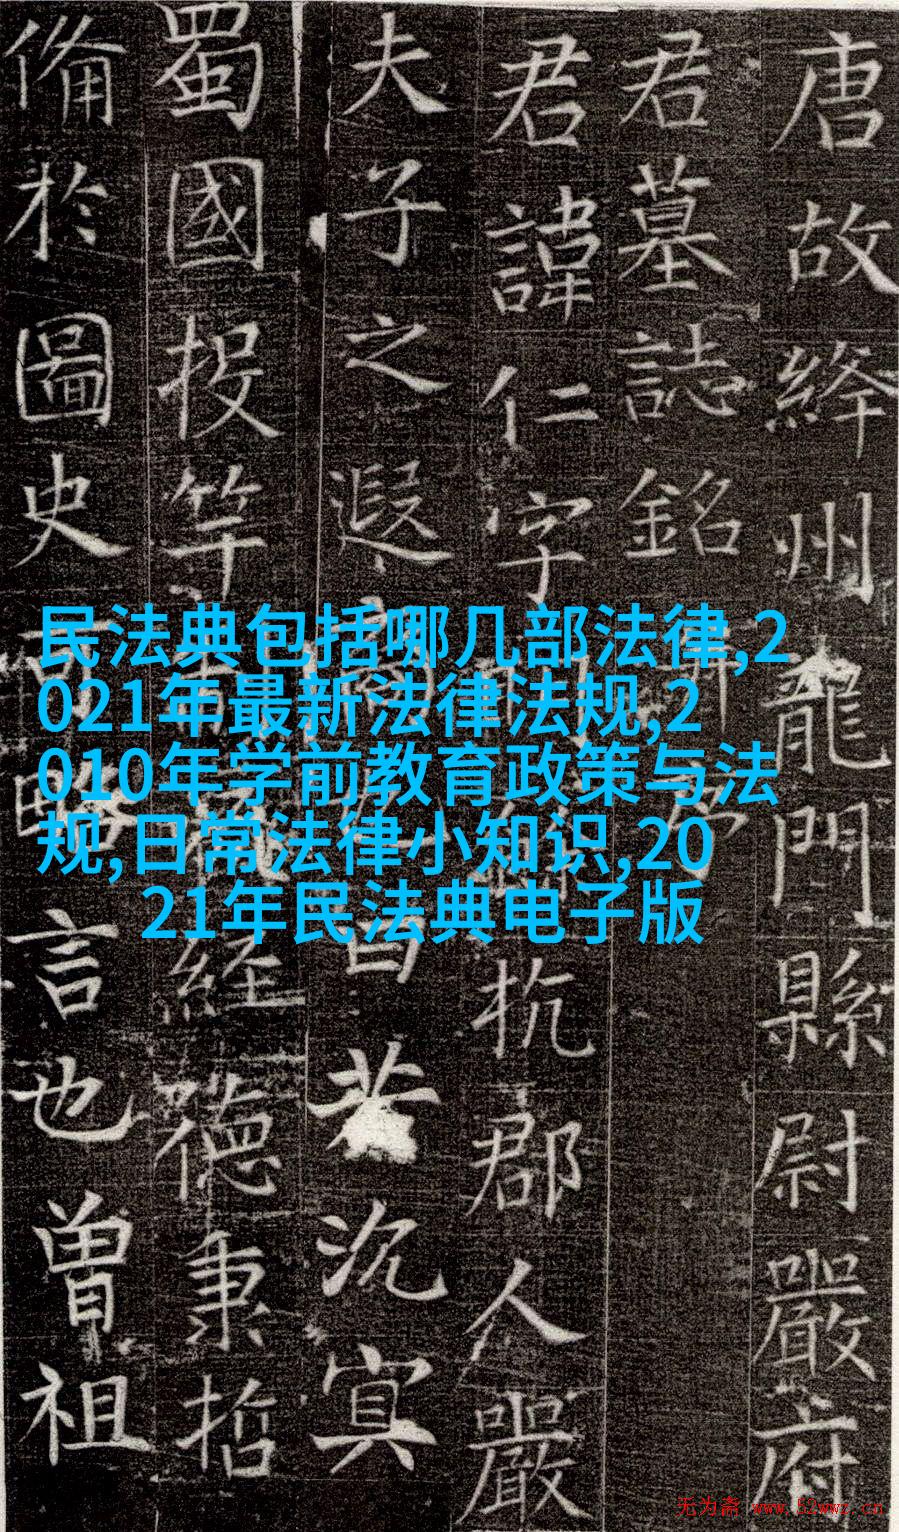 唐故絳州龍門縣尉嚴府
君墓誌銘
君諱仁字 杭郡人嚴
夫子之遐 曰若沉冥
蜀國投竿 經德秉哲
備於圖史可略言也曾祖
民法典包括哪几部法律,2
021年最新法律法规,2
010年学前教育政策与法
规,日常法律小知识,20
21年民法典电子版
无为斋 www.52wwz.cn